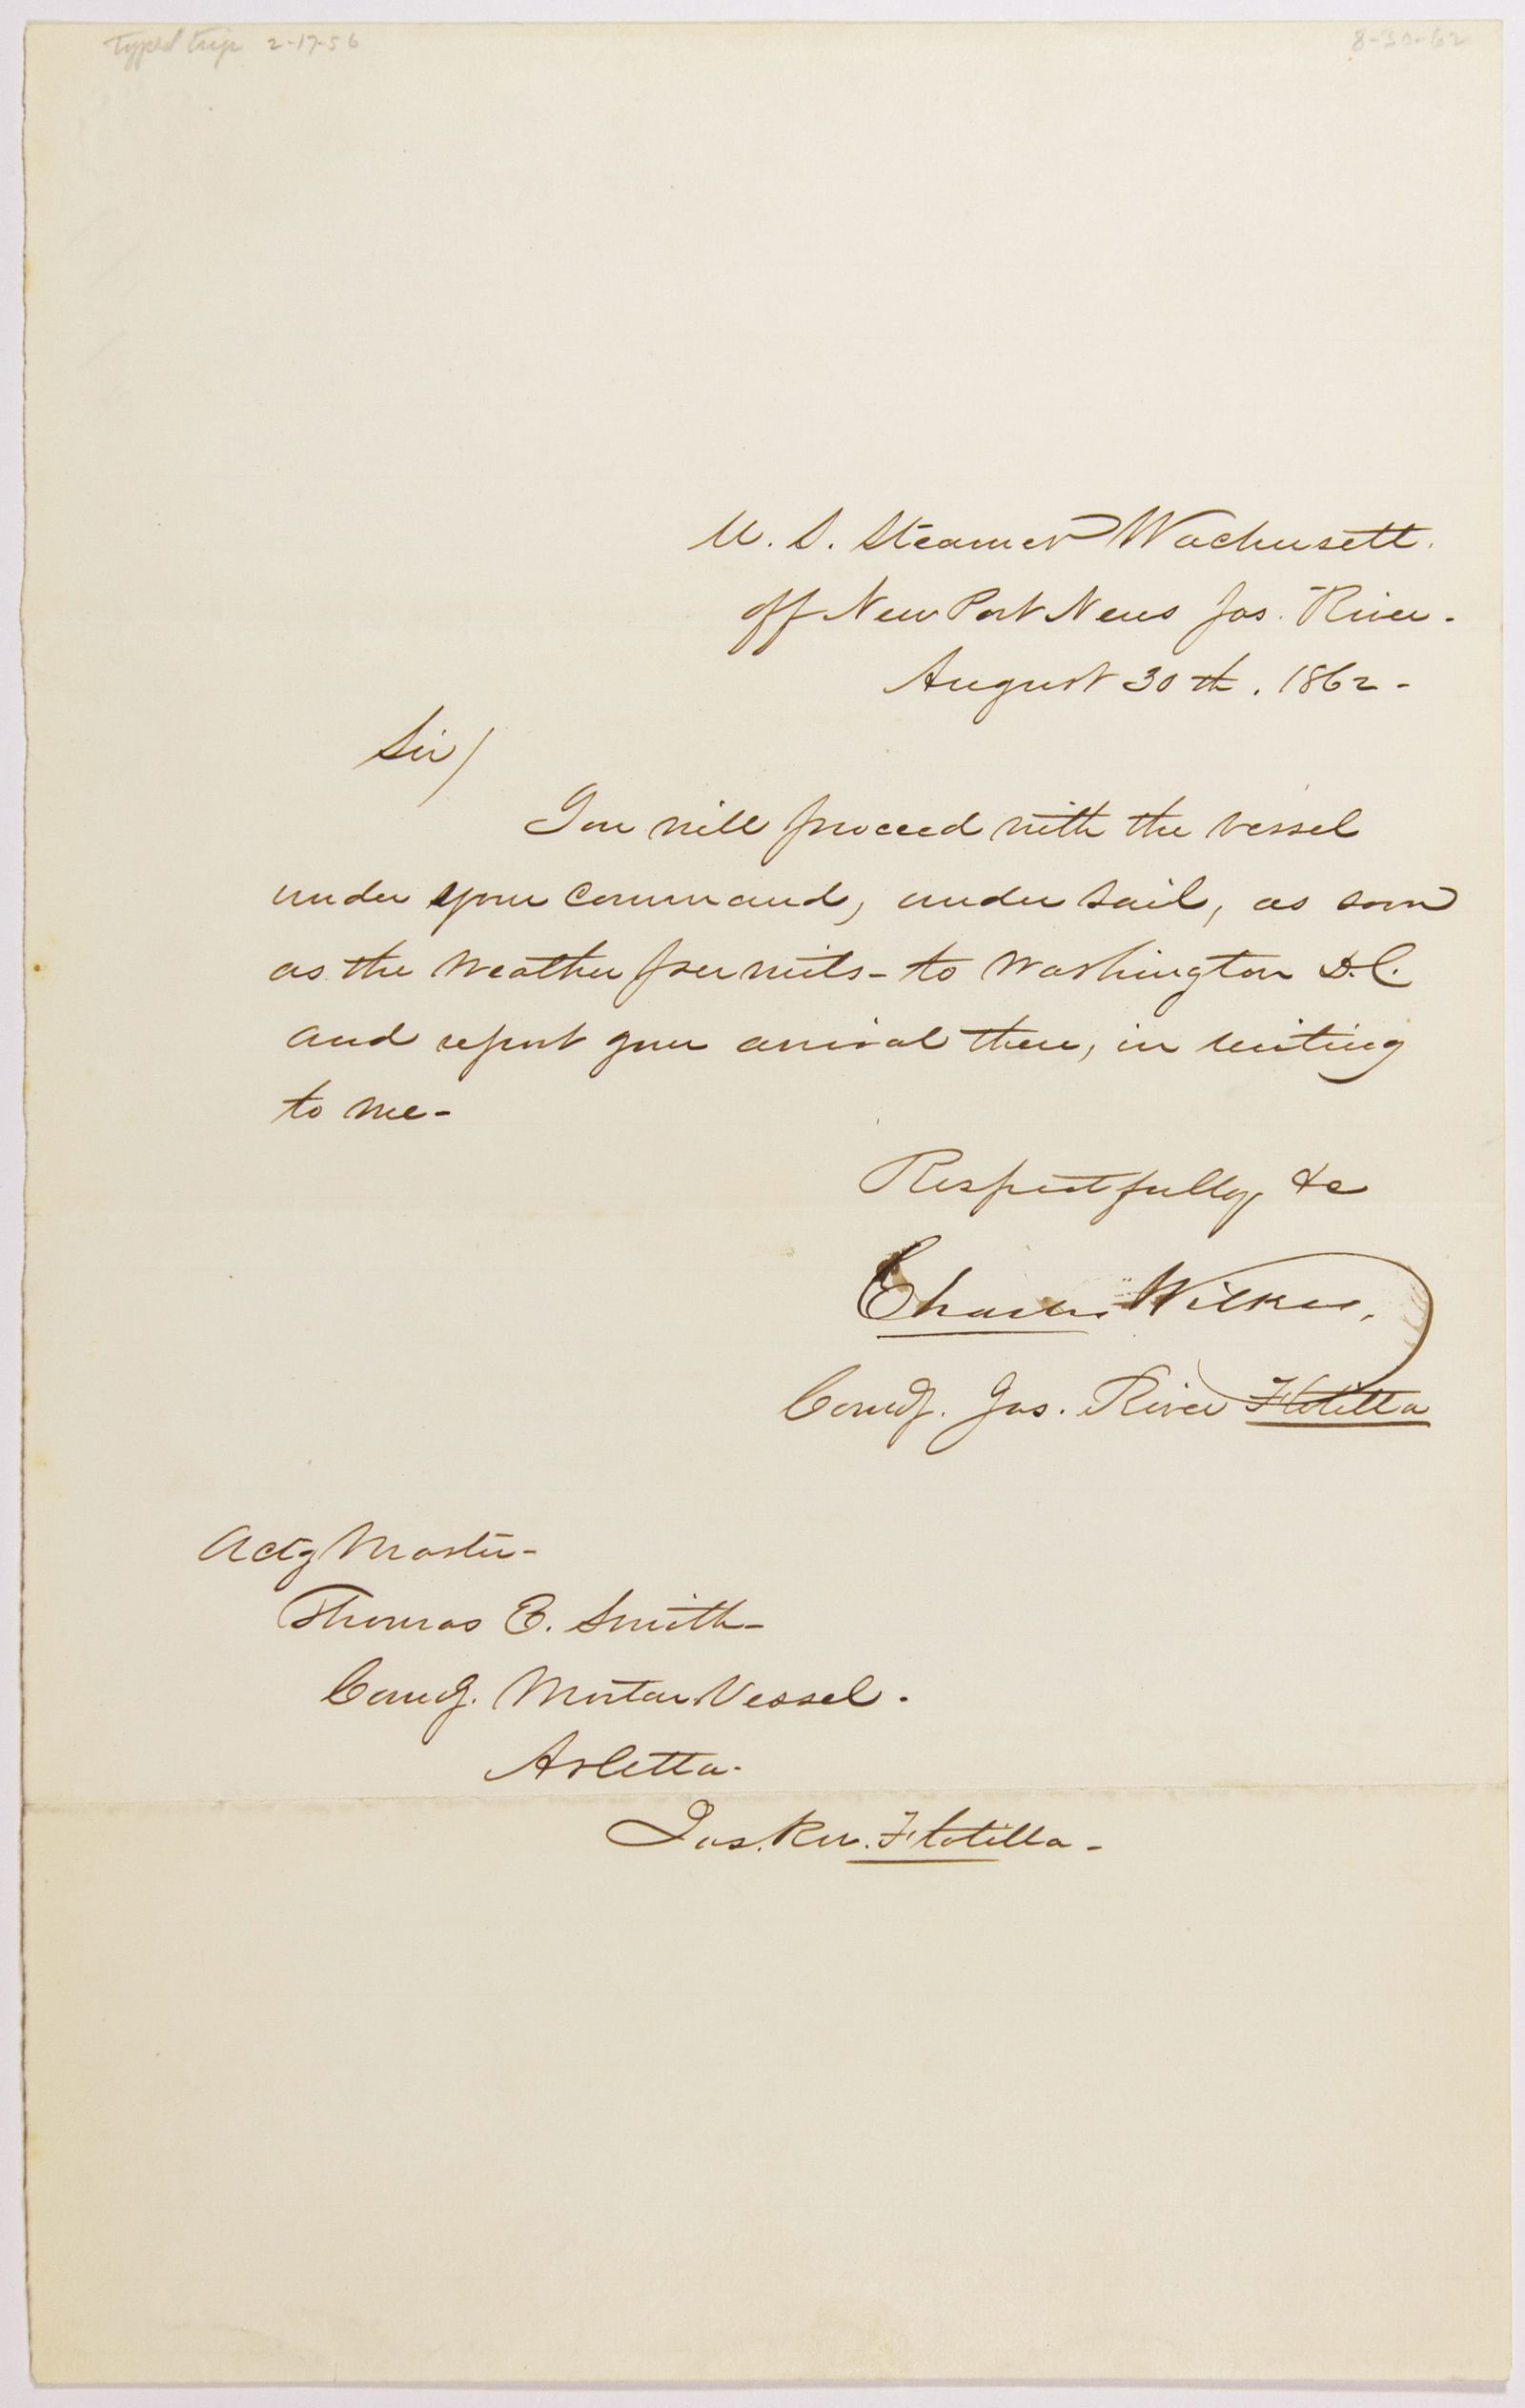 typed trip 2-17-56
8-30-62
U. S. Steamer Wachusett.
off New Port News Jas. River -
August 30th. 1862 -
Sir/
You will proceed with the vessel
under your command, under sail, as soon
as the weather permits - to Washington D.C.
and report your arrival there, in writing
to me -
Respectfully &c
Charles Wilkes,
Comdg. Jas. River Flotilla
Actg Master -
Thomas E. Smith -
Comdg. Mortar Vessel.
Arletta -
Jas. Riv. Flotilla -